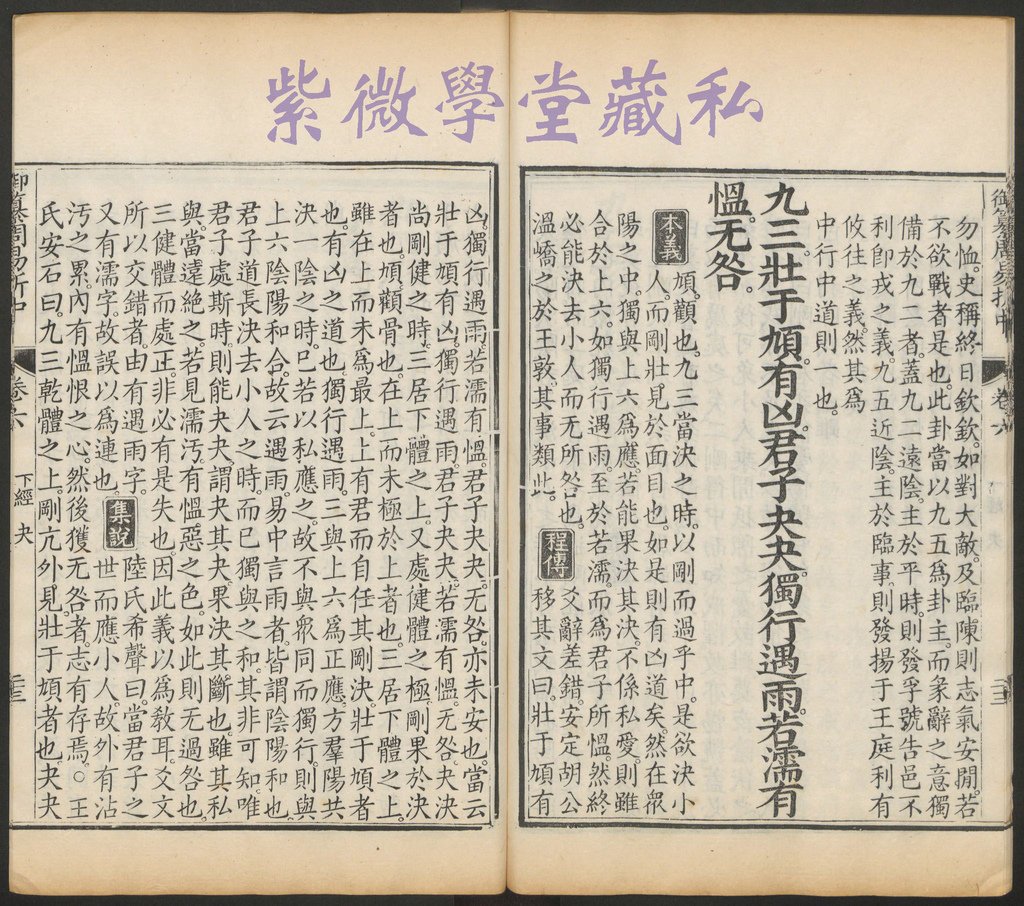 紫微學堂藏私
御纂周易折中 卷六
勿恤。史稱終日欽欽。如對大敵。及臨陳則志氣安閒。若
不欲戰者是也。此卦當以九五爲卦主。而彖辭之意獨
備於九二者。蓋九二遠陰。主於平時。則發孚號告邑不
利卽戎之義。九五近陰。主於臨事。則發揚于王庭利有
攸往之義。然其爲
中行中道則一也。
九三。壯于頄。有凶。君子夬夬。獨行遇雨若濡。有
慍。无咎。
本義 頄。顴也。九三當決之時。以剛而過乎中。是欲決小
人。而剛壯見於面目也。如是則有凶道矣。然在衆
陽之中。獨與上六爲應。若能果決其決。不係私愛。則雖
合於上六。如獨行遇雨。至於若濡。而爲君子所慍。然終
必能決去小人。而无所咎也。
溫嶠之於王敦。其事類此。
程傳 爻辭差錯。安定胡公
移其文曰。壯于頄有
凶。獨行遇雨。若濡有慍。君子夬夬。无咎。亦未安也。當云
壯于頄有凶。獨行遇雨。君子夬夬。若濡有慍。无咎。夬決
尚剛健之時。三居下體之上。又處健體之極。剛果於決
者也。頄。顴骨也。在上而未極於上者也。三居下體之上。
雖在上而未爲最上。上有君而自任其剛決。壯于頄者
也。有凶之道也。獨行遇雨。三與上六爲正應。方羣陽共
決一陰之時。已若以私應之。故不與衆同而獨行。則與
上六陰陽和合。故云遇雨。易中言雨者。皆謂陰陽和也。
君子道長。決去小人之時。而已獨與之和。其非可知。唯
君子處斯時。則能夬夬。謂夬其夬。果決其斷也。雖其私
與。當遠絶之。若見濡汚。有慍惡之色。如此則无過咎也。
三健體而處正。非必有是失也。因此義以爲敎耳。爻文
所以交錯者。由有遇雨字。
又有濡字。故誤以爲連也。
集説 陸氏希聲曰。當君子之
世而應小人。故外有沾
汚之累。內有慍恨之心。然後獲无咎者。志有存焉。○王
氏安石曰。九三乾體之上。剛亢外見。壯于頄者也。夬夬
御纂周易折中 卷六 下經 夬